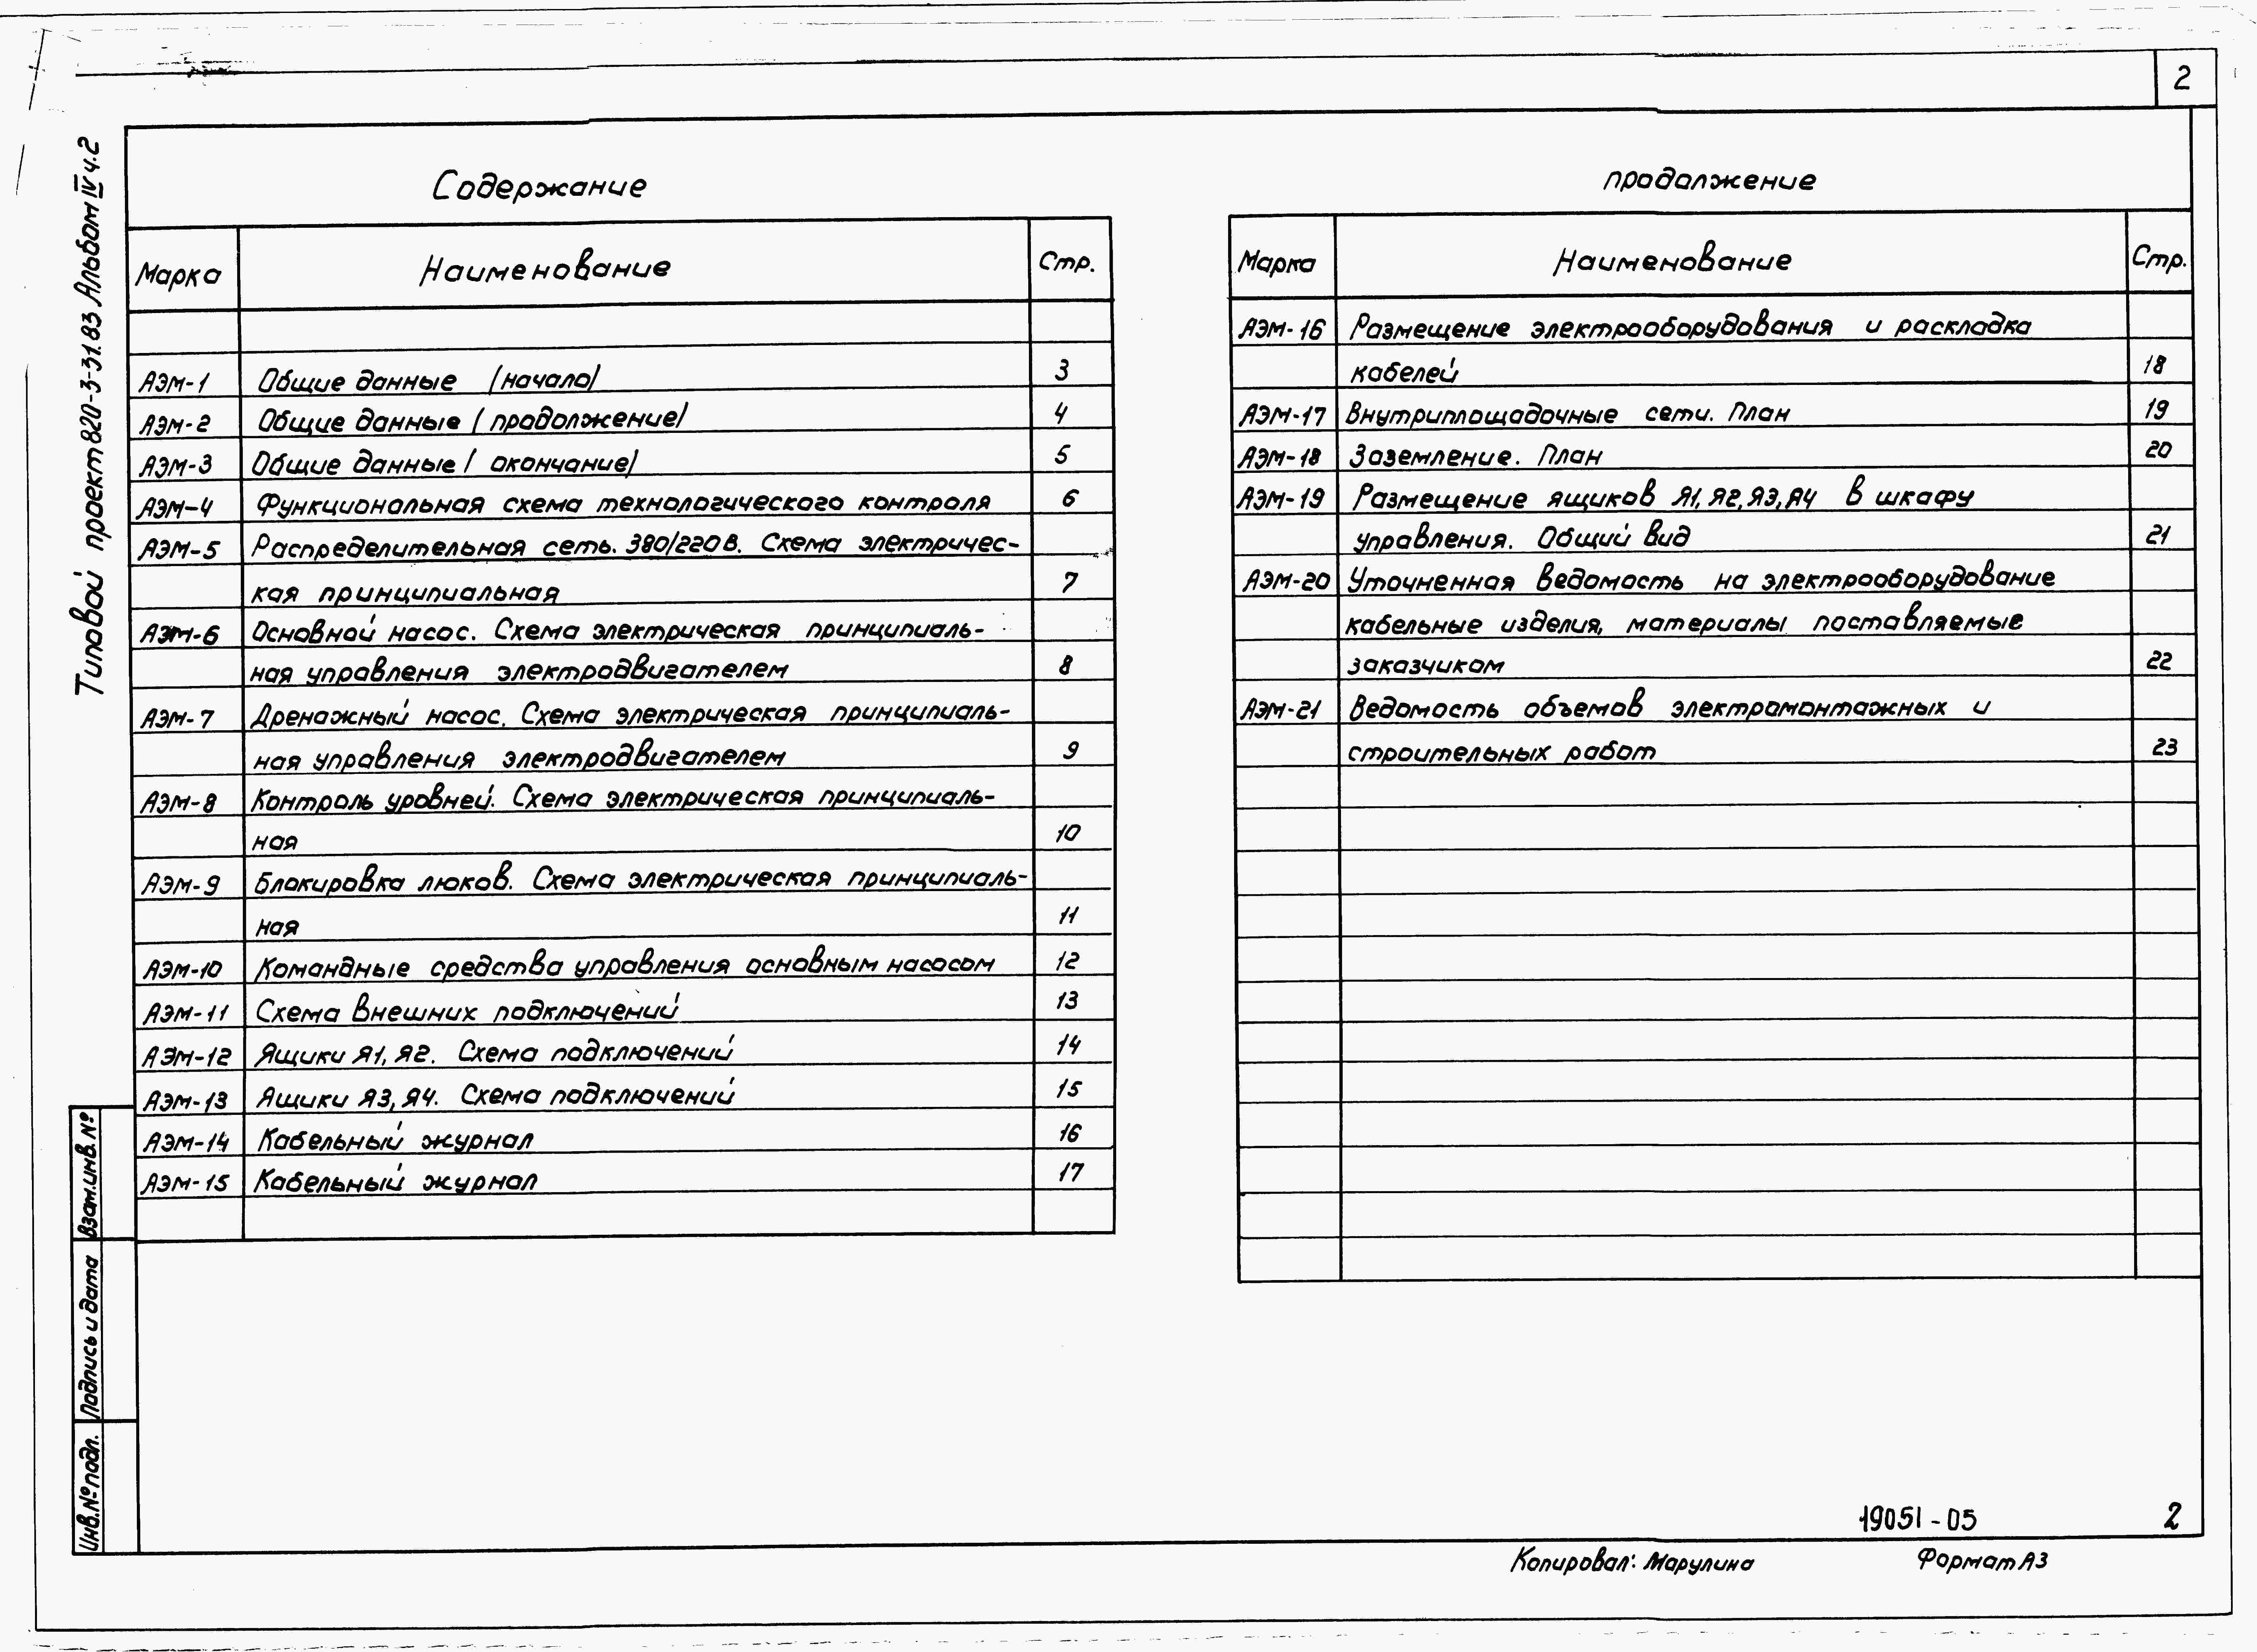 2
Типовой проект 820-3-31.83 Альбом IV ч.2
Содержание
Марка Наименование Стр.
АЭМ-1 Общие данные /начало/ 3
АЭМ-2 Общие данные /продолжение/ 4
АЭМ-3 Общие данные / окончание/ 5
АЭМ-4 Функциональная схема технологического контроля 6
АЭМ-5 Распределительная сеть. 380/220В. Схема электричес-
кая принципиальная 7
АЭМ-6 Основной насос. Схема электрическая принципиаль-
ная управления электродвигателем 8
АЭМ-7 Дренажный насос. Схема электрическая принципиаль-
ная управления электродвигателем 9
АЭМ-8 Контроль уровней. Схема электрическая принципиаль-
ная 10
АЭМ-9 Блокировка люков. Схема электрическая принципиаль-
ная 11
АЭМ-10 Командные средства управления основным насосом 12
АЭМ-11 Схема внешних подключений 13
АЭМ-12 Ящики Я1, Я2. Схема подключений 14
АЭМ-13 Ящики Я3, Я4. Схема подключений 15
АЭМ-14 Кабельный журнал 16
АЭМ-15 Кабельный журнал 17
продолжение
Марка Наименование Стр.
АЭМ-16 Размещение электрооборудования и раскладка
кабелей 18
АЭМ-17 Внутриплощадочные сети. План 19
АЭМ-18 Заземление. План 20
АЭМ-19 Размещение ящиков Я1, Я2, Я3, Я4 в шкафу
управления. Общий вид 21
АЭМ-20 Уточненная ведомость на электрооборудование
кабельные изделия, материалы поставляемые
заказчиком 22
АЭМ-21 Ведомость объемов электромонтажных и
строительных работ 23
Взам.инв.№
Подпись и дата
Инв.№подл.
19051-05 2
Копировал: Марулина Формат А3